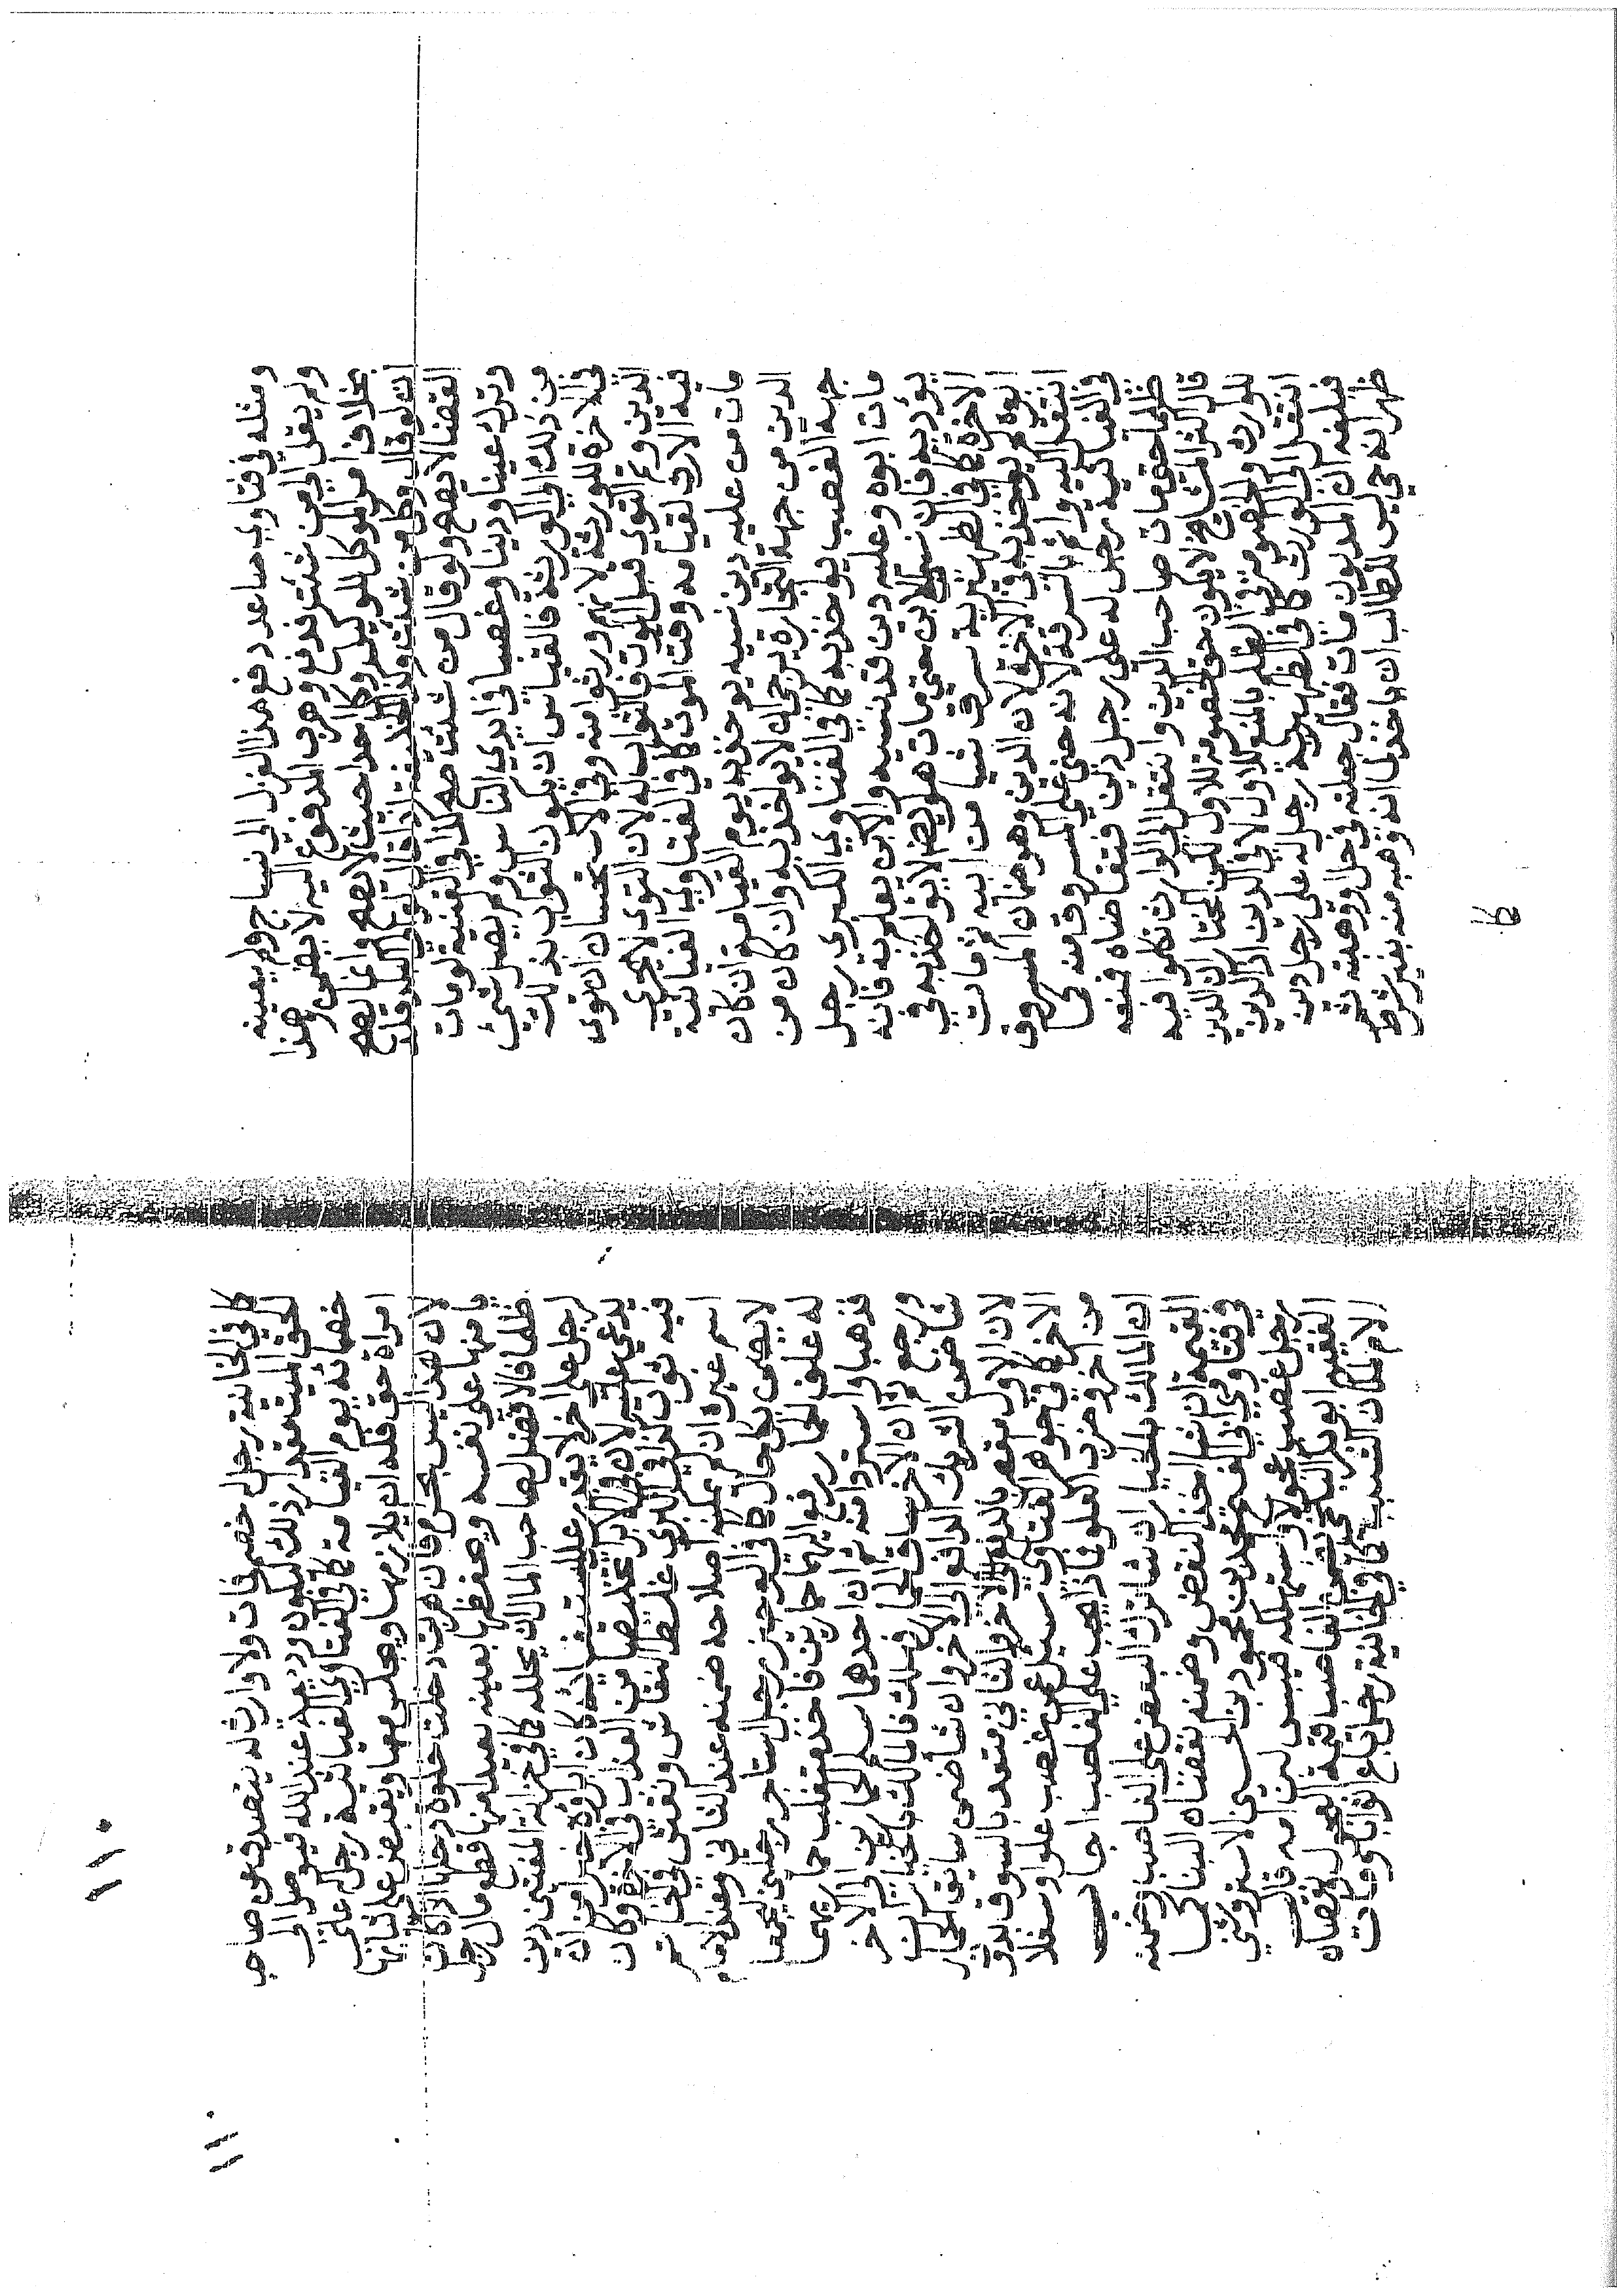 ومثله في فتاوي صاعد دفع هذا الغزل الي نساج ولم يعينه
ولم يقل الي من شئت فدفع وهرب المدفوع اليه لا يضمن وهذا
بخلاف امر الموكل للوكيل وكل احدا حيث لا يصح وانما يصح
ان لو قال وكل من شئت وكذا الخليفة اذا قال لوالي البلد قلد
القضا لا يصح ولو قال من شئت صح كذا في القنية لو مات
وترك عينا ودينا وغصبا في ايدي الناس ولم يصل شئ
من ذلك الي الورثة فالقياس ان يكون الثواب بذلك
في الاخرة للورثة لانهم ورثوا منه وفي الاستحسان ان توى
الدين وتم التوى قبل الموت فالثواب له لان التوى لا يجري
فيه الارث لقيامه وقت الموت كما في الفتاوي الغياثية
مات من عليه دين نسيه يواخذ به يوم القيامة ان كان
الدين من جهة التجارة يرجى ان لا يواخذ به وان كان من
جهة الغصب يواخذ به كما في الفتاوي الكبري رجل
مات ابوه وعليه دين قد نسيه والابن يعلم به فانه
يؤديه فان نسي الابن حتي مات هو ايضا لا يؤاخذ به في
الاخرة كما في الظهيرية سرق شيا من ابيه ثم مات
ابوه لم يواخذ به في الاخرة لان الدين وهو ضمان المسروق
انتقل اليه واثم بالسرقة لانه جنى علي المسروق منه كما
في الغياثية رجل له علي رجل دين فتقاضاه فمنعه
ظلما حتى مات صاحب الدين وانتقل الى الوارث تكلموا فيه
قال اكثر المشايخ لا يكون حق الخصومة للاول لكن المختار ان الدين
للوارث والخصومة في الظلم بالمنع للاول لا في الدين اذ الدين
انتقل الى الوارث كما في الظهيرية رجل له على رجل دين
فبلغه ان المديون مات فقال جعلته في حل او وهبته ثم
ظهر انه حي ليس للطالب ان ياخذ لانه وهبه منه بغير شرط
كا
١١٠
كما في الخانية رجل له خصم فمات ولا وارث له يتصدق عن صاحب
الحق الميت مقدار ذلك ليكون وديعة عند الله فيوصل الى
خصمائه يوم القيامة كما في الفتاوي الغياثية رجل له على
امراة حق فله ان يلازمها ويجلس معها ويقبض على ثيابها
لان هذا ليس بحرام فان هربت ودخلت خلوة دخلها اذا كان
على نفسه ويحفظها بعينه بعيدا عنها قطع مال رجل
ظلما فالافضل لصاحب المال ان يحلله كما في خزانة المفتين دين
لرجل على اخر لا يقدر على استيفائه كان ابراؤه خيرا من ان
يدعي عليه لان في الابراء تخليصا من العذاب في الاخرة وكان
فيه ثواب كذا في الكبري غلط النقاش ونقش في خاتم
اسم غيره ان لم يمكنه اصلاحه ضمنه عند الثاني وعند الامام
لا يضمن بكل حال كما في الوجيز رجل استاجر رجلين ليحملا
له علف الحمار دفع اليهما حمارين فاخذ متغلب حماريهما
فذهبا واستردا منه ثم ان احدهما سلم الحمارين الي الاخر
ورجع ثم ان الاخر ساق الحمار فهلك فالمالك بالخيار ان
شا ضمن الشريك الدافع الي الاخر وان شا ضمن سايق الحمار
لان الاول متعد بالدفع الي الاخر والثاني متعد بالسوق بدون
الاخر كما في جواهر الفتاوي سئل عن غصب علوا وسفلا
من اخر العلو ماذا يجب علي الغاصب اجاب
ان المالك بالخيار ان شا ترك النقض على الغاصب وضمنه
القيمة وان شا اخذ النقض وضمنه نقصان البنا كما
في فتاوي محمد بن محمود بن الحسين الاستروشني
رجل غصب عجولا فاستهلكه فيبس لبن امه قال
الفقيه ابو بكر البلخي يضمن الغاصب قيمة العجول ونقصان
الام لكان السبب كما في الخانية رجل ومات
١١